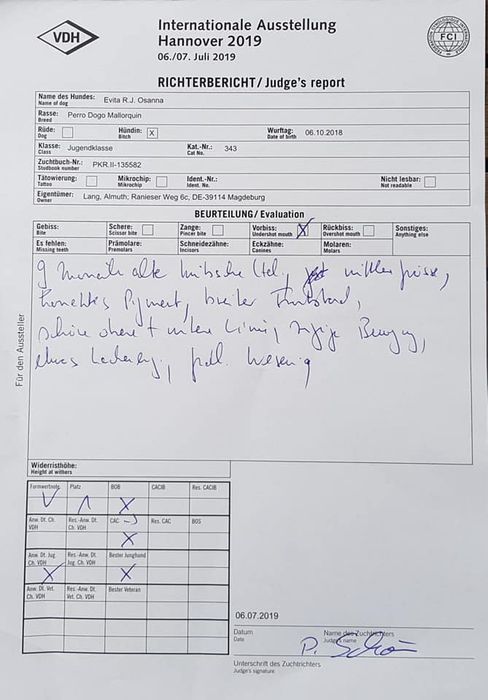 VDH
Internationale Ausstellung
Hannover 2019
06./07. Juli 2019
FCI
RICHTERBERICHT / Judge's report
Name des Hundes: Evita R.J. Osanna
Name of dog
Rasse: Perro Dogo Mallorquin
Breed
Rüde: Hündin: X Wurftag: 06.10.2018
Dog Bitch Date of birth
Klasse: Jugendklasse Kat.-Nr.: 343
Class Cat No.
Zuchtbuch-Nr.: PKR.II-135582
Studbook number
Tätowierung: Mikrochip: Ident.-Nr.: Nicht lesbar:
Tattoo Mikrochip Ident. No. Not readable
Eigentümer: Lang, Almuth; Ranieser Weg 6c, DE-39114 Magdeburg
Owner
BEURTEILUNG / Evaluation
Gebiss: Schere: Zange: Vorbiss: X Rückbiss: Sonstiges:
Bite Scissor bite Pincer bite Undershot mouth Overshot mouth Anything else
Es fehlen: Prämolare: Schneidezähne: Eckzähne: Molaren:
Missing teeth Premolars Incisors Canines
9 Monate alte hübsche mittlerer Grösse,
korrektes Pigment, breiter
schöne obere + untere Linie, Bewegung,
etwas
Für den Aussteller
Widerristhöhe:
Height at withers
Formwertnote Platz BOB CACIB Res. CACIB
V 1 X
Anw. Dt. Ch. VDH Res.-Anw. Dt. Ch. VDH CAC Res. CAC BOS
X
Anw. Dt. Jug. Ch. VDH Res.-Anw. Dt. Jug. Ch. VDH Bester Junghund
X X
Anw. Dt. Vet. Ch. VDH Res.-Anw. Dt. Vet. Ch. VDH Bester Veteran
06.07.2019
Datum
Date
Name des Zuchtrichters
Judge's name
Unterschrift des Zuchtrichters
Judge's signature